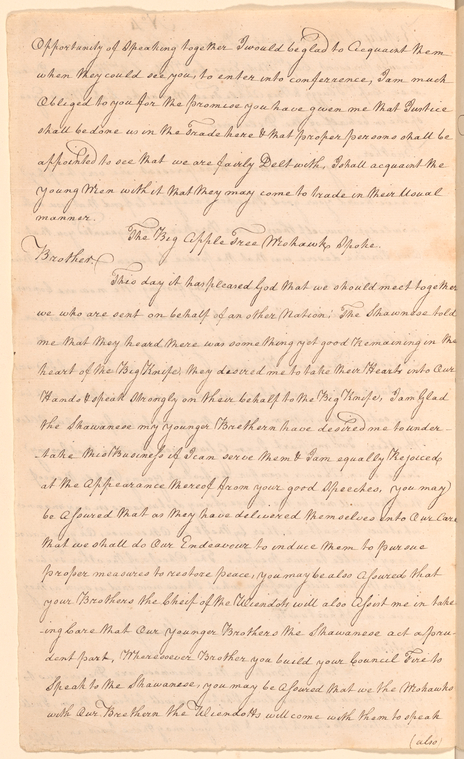 Opportunity of Speaking together I would be glad to Acquaint them
when they could see you, to enter into conferrence, I am much
Obliged to you for the promise you have given me that Justice
shall be done us in the Trade here & that proper persons shall be
appointed to see that we are fairly Delt with, I shall acquaint the
young Men with it that they may come to trade in their Usual
manner.
The Big Apple Tree Mohawk Spoke.
Brother,
This day it has pleased God that we should meet together
we who are sent on behalf of an other Nation: The Shawnese told
me that they heard there was something yet good Remaining in the
heart of the Big Knife, they desired me to take their Hearts into Our
Hands & speak Strongly on their behalf to the Big Knife, I am Glad
the Shawanese my younger Brethern have desired me to under-
-take this Business if I can serve them & I am equally Rejoiced
at the Appearance thereof from your good Speeches, you may
be Assured that as they have delivered themselves into Our Care
that we shall do Our Endeavour to induce them to pursue
proper measures to restore peace, you may be also Assured that
your Brothers the Cheif of the Wiendots will also Assist me in take
ing Care that Our younger Brothers the Shawanese act a pru-
dent part, Wheresoever Brother you build your Council Fire to
Speak to the Shawanese, you may be Assured that we the Mohawks
with Our Brethern the Wiendotts will come with them to speak
(also)